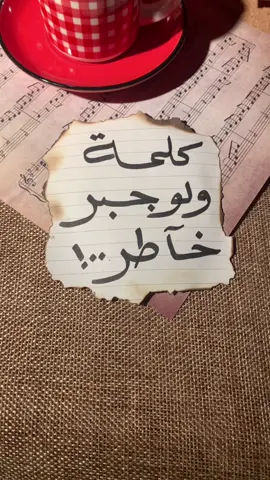 كلمة
ولو جبر
خآطر..!